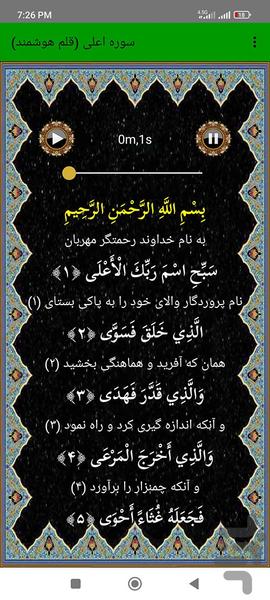 7:26 PM 4.5G 18
سوره اعلی (قلم هوشمند)
0m,1s
بِسْمِ اللَّهِ الرَّحْمَنِ الرَّحِيمِ
به نام خداوند رحمتگر مهربان
سَبِّحِ اسْمَ رَبِّكَ الْأَعْلَى ﴿۱﴾
نام پروردگار والای خود را به پاکی بستای (۱)
الَّذِي خَلَقَ فَسَوَّى ﴿۲﴾
همان که آفرید و هماهنگی بخشید (۲)
وَالَّذِي قَدَّرَ فَهَدَى ﴿۳﴾
و آنکه اندازه گیری کرد و راه نمود (۳)
وَالَّذِي أَخْرَجَ الْمَرْعَى ﴿۴﴾
و آنکه چمنزار را برآورد (۴)
فَجَعَلَهُ غُثَاءً أَحْوَى ﴿۵﴾